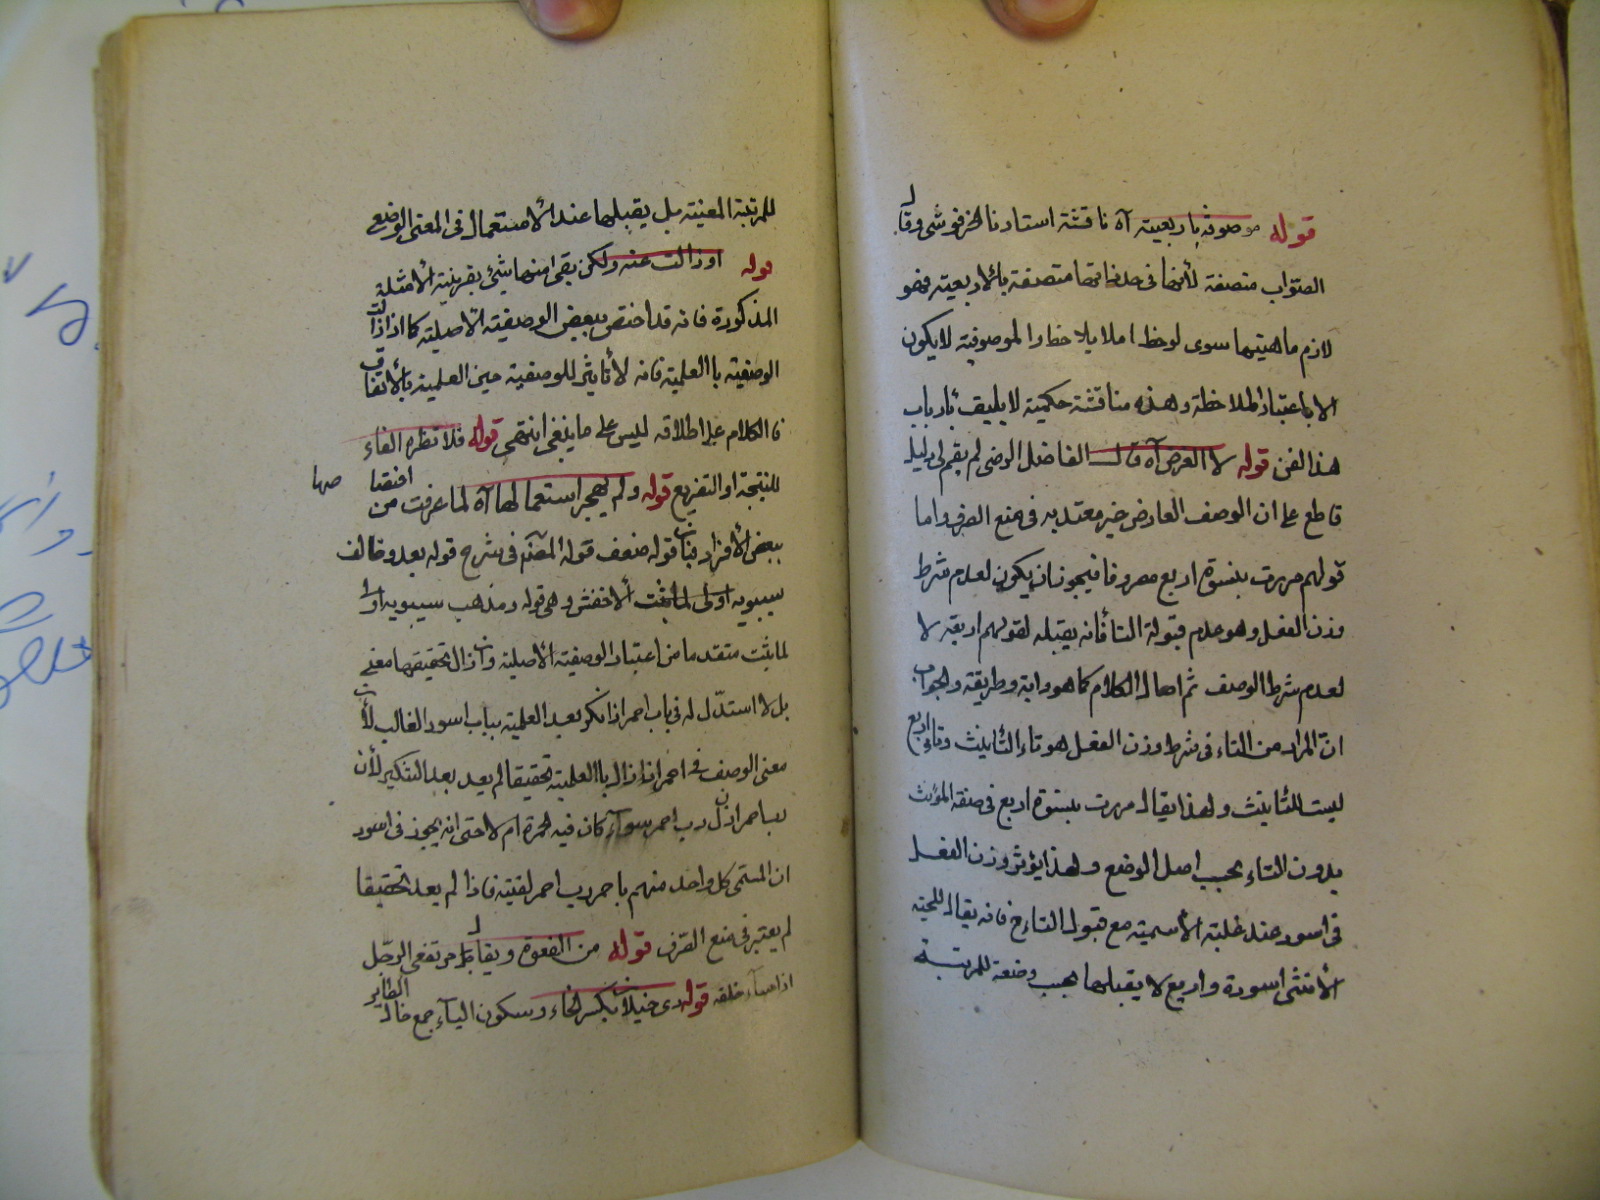 قوله موصوفة باربعيته آه ناقشة استادنا الخرفوشى وقال
الصّواب متصفة لأنها فى حد ذاتها متصفة بالاربعيته فهو
لازم ماهيتها سوى لوحظ املا يلاحظ اوالموصوفية لايكون
الا باعتبار الملاحظة وهذه مناقشة حكمية لايليق بأرباب
هذا الفن قوله لا العرض آه قال الفاضل الرضى لم يقم لى دليل
قاطع على ان الوصف العارض غير معتد به فى منع الصرف واما
قولهم مررت بنسوة اربع مصروفا فيجوز ان يكون لعدم شرط
وزن الفعل وهو عدم قبولة التا فأنه يقبله لقولهم اربعة لا
لعدم شرط الوصف ثم اطال الكلام كما هو دابة وطريقة والجواب
انّ المراد من التاء فى شرط وزن الفعل هو تاء التأنيث وتاء اربع
ليست للتأنيث ولهذا يقال مررت بنسوة اربع فى صفة المؤنث
بدون التاء بحسب اصل الوضع ولهذا يؤثر وزن الفعل
فى اسود عند غلبته الأسمية مع قبول التاء خ فانه يقال للحية
الأنثى اسودة واربع لا يقبلها بحسب وضعة للمرتبة
للمرتبة المعنية بل يقبلها عند الأستعمال فى المعنى الوضع
قوله اوزالت عنه ولكن بقى منها شئ بقرينة الأمثلة
المذكورة فانه قد اختص ببعض الوصفية الاصلية كما اذا زالت
الوصفية باالعلمية فانه لا تأثير للوصفية حين العلمية بالاتفاق
فالكلام على اطلاقه ليس على ماينبغى انتهى قوله فلا تضره الفاء
للنتيجة اوالتفريع قوله ولم يهجر استعمالها آه لما عرفت من اختصاصها
ببعض الأفراد بناف قوله ضعف قوله المصنّم فى شرح قوله بعد وخالف
سيبويه اولى لما يثبت الاخفش وهى قوله ومذهب سيبويه اولى
لما يثبت متقدما من اعتبار الوصفية الأصلية وان زال تحقيقها معنى
بل لا استدّل له فى باب احمر اذا نكر بعد العلمية بباب اسود الغالب لأن
معنى الوصف فى احمر اذا زال باالعلمية تحقيقا لم يعد بعد التنكير لأن
رب احمر اذن رب احمر سواء كان فيه حمرة ام لا حتى انه يجوز فى اسود
ان المسمّى كل واحد منهم باحمر رب احمر لقيته فاذا لم يعد تحقيقا
لم يعتبر فى منع الصّرف قوله من الفعوة ويقال تفعى الرّجل
اذا ساء خلقه قوله ذى خيلان بكسر الخاء وسكون الياء جمع خال الطاير